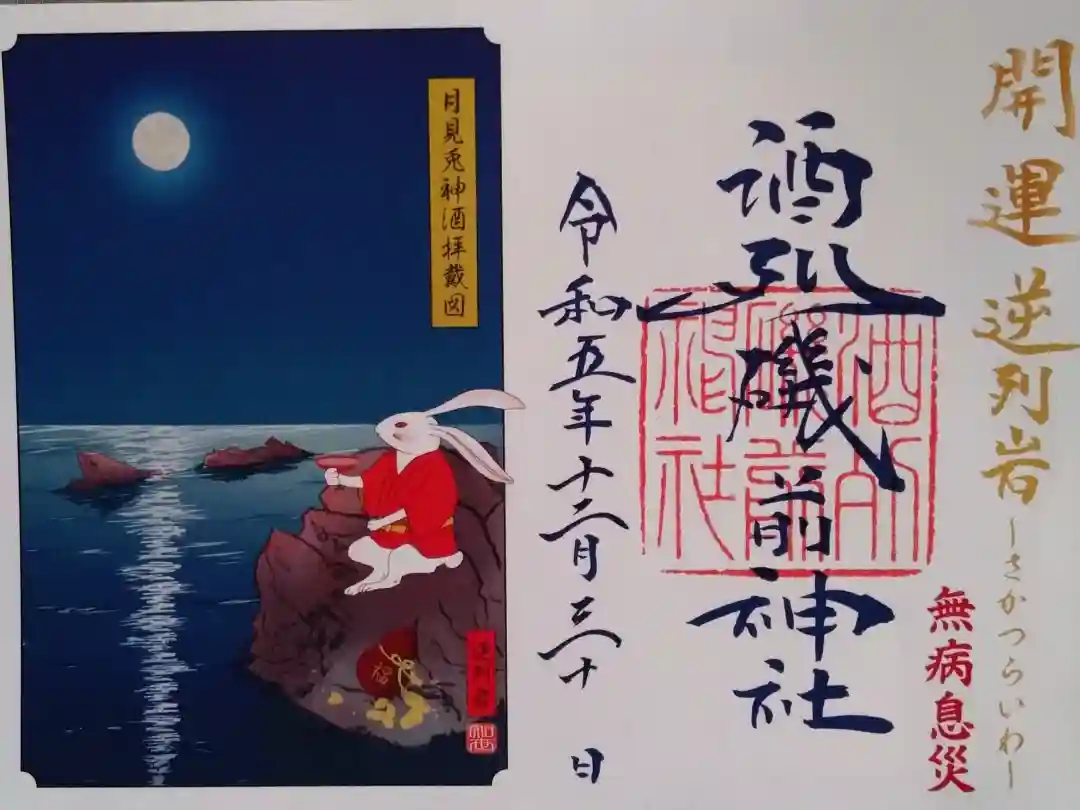 開運逆列岩
〜さかつらいわ〜
無病息災
酒列磯前神社
酒列磯前神社
令和五年十二月三十日
月見兎神酒拝戴図
福
逆列岩